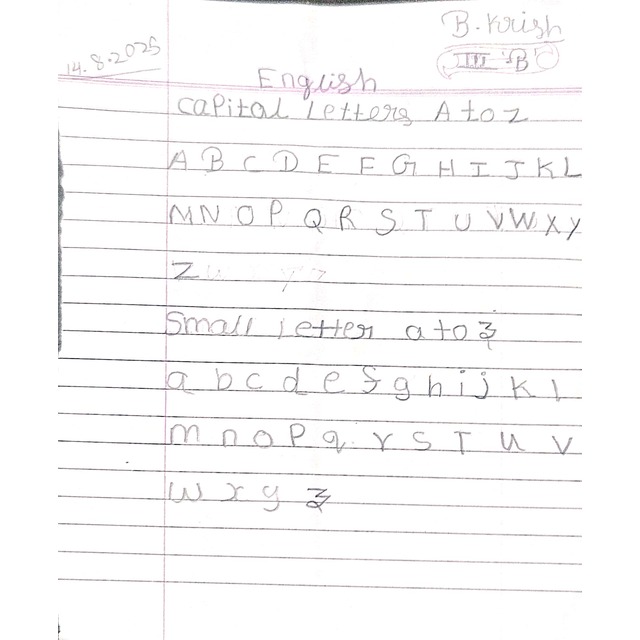 B. Krish
III B
14.8.2025
English
Capital Letters A to z
A B C D E F G H I J K L
M N O P Q R S T U V W X Y
Z
Small letter a to z
a b c d e f g h i j k l
m n o p q r s t u v
w x y z